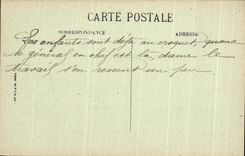 CARTE POSTALE
CORRESPONDANCE
ADRESSE
Les enfants sont déjà au croquet, quand
le général en chef est là, dame le
travail s'en ressent un peu